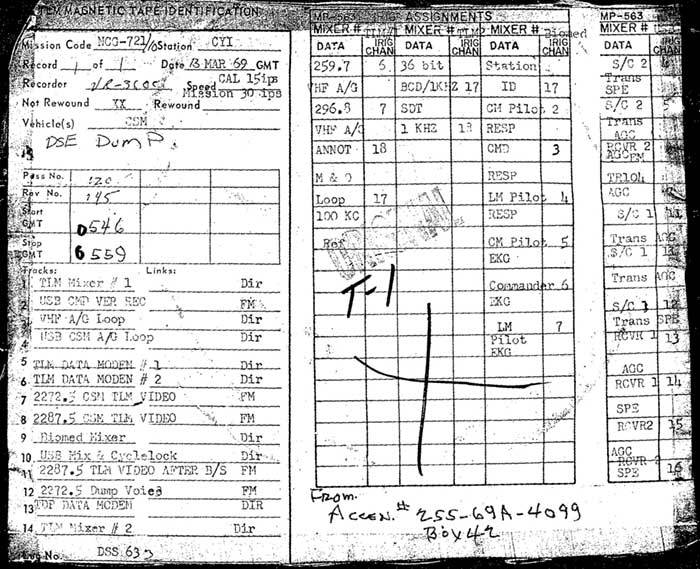 TLM MAGNETIC TAPE IDENTIFICATION
Mission Code NCG-721/ Station CYI
Record 1 of 1 Date 13 MAR 69 GMT
Recorder VR-3600 Speed CAL 15ips
Mission 30 ips
Not Rewound XX Rewound
Vehicle(s) CSM
DSE Dump
Pass No. 120
Rev No. 145
Start GMT 0546
Stop GMT 6559
Tracks: Links:
1 TLM Mixer # 1 Dir
2 USB CMD VER REC FM
3 VHF A/G Loop Dir
4 USB CSM A/G Loop Dir
5 TLM DATA MODEM # 1 Dir
6 TLM DATA MODEN # 2 Dir
7 2272.5 CSM TLM VIDEO FM
8 2287.5 CSM TLM VIDEO FM
9 Biomed Mixer Dir
10 USB Mix & Cyclelock Dir
11 2287.5 TLM VIDEO AFTER B/S FM
12 2272.5 Dump Voice FM
13 TDP DATA MODEM DIR
14 TLM Mixer # 2 Dir
Log No. DSS 633
MP-563 IRIG ASSIGNMENTS
MIXER # TLM#1 MIXER # TLM# MIXER # Biomed
DATA IRIG CHAN DATA IRIG CHAN DATA IRIG CHAN
259.7 6 36 bit Station
VHF A/G BCD/1KHZ 17 ID 17
296.8 7 SDT CM Pilot 2
VHF A/G 1 KHZ 18 RESP
ANNOT 18 CMD 3
M & O RESP
Loop 17 LM Pilot 4
100 KC RESP
Ref CM Pilot 5
EKG
T-1
Commander 6
EKG
LM 7
Pilot
EKG
From.
Accen.# 255-69A-4099
Box 42
MP-563
MIXER #
DATA
S/C 2 4
Trans
SPE
S/C 2 5
Trans
AGC
RCVR 2
AGC
TR104
AGC
S/C 1 11
Trans AGC
S/C 1
Trans AGC
S/C 3 12
Trans SPE
RCVR 1 13
AGC
RCVR 1 14
SPE
RCVR2 15
AGC
RCVR 2
SPE 16